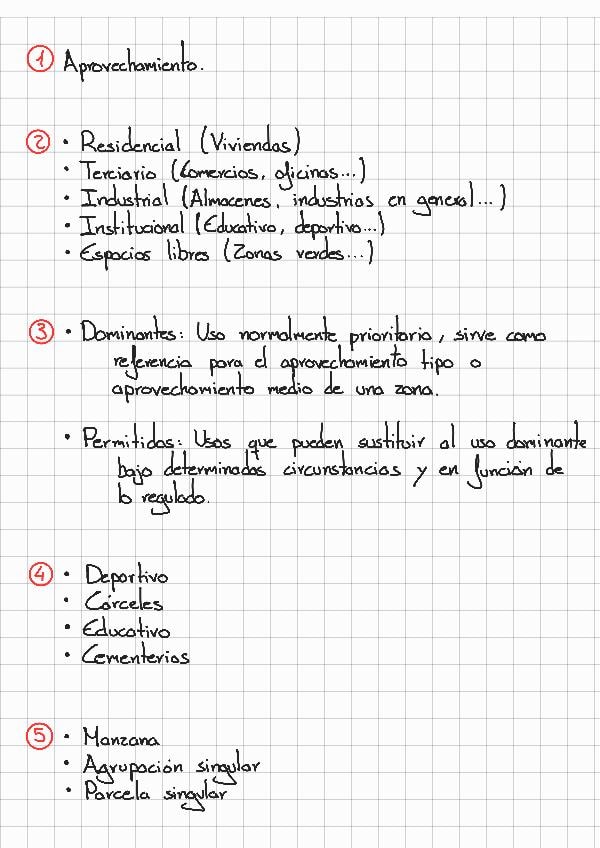 1 Aprovechamiento.
2 • Residencial (Viviendas)
• Terciario (Comercios, oficinas...)
• Industrial (Almacenes, industrias en general...)
• Institucional (Educativo, deportivo...)
• Espacios libres (Zonas verdes...)
3 • Dominantes: Uso normalmente prioritario, sirve como
referencia para el aprovechamiento tipo o
aprovechamiento medio de una zona.
• Permitidos: Usos que pueden sustituir al uso dominante
bajo determinadas circunstancias y en función de
lo regulado.
4 • Deportivo
• Cárceles
• Educativo
• Cementerios
5 • Manzana
• Agrupación singular
• Parcela singular